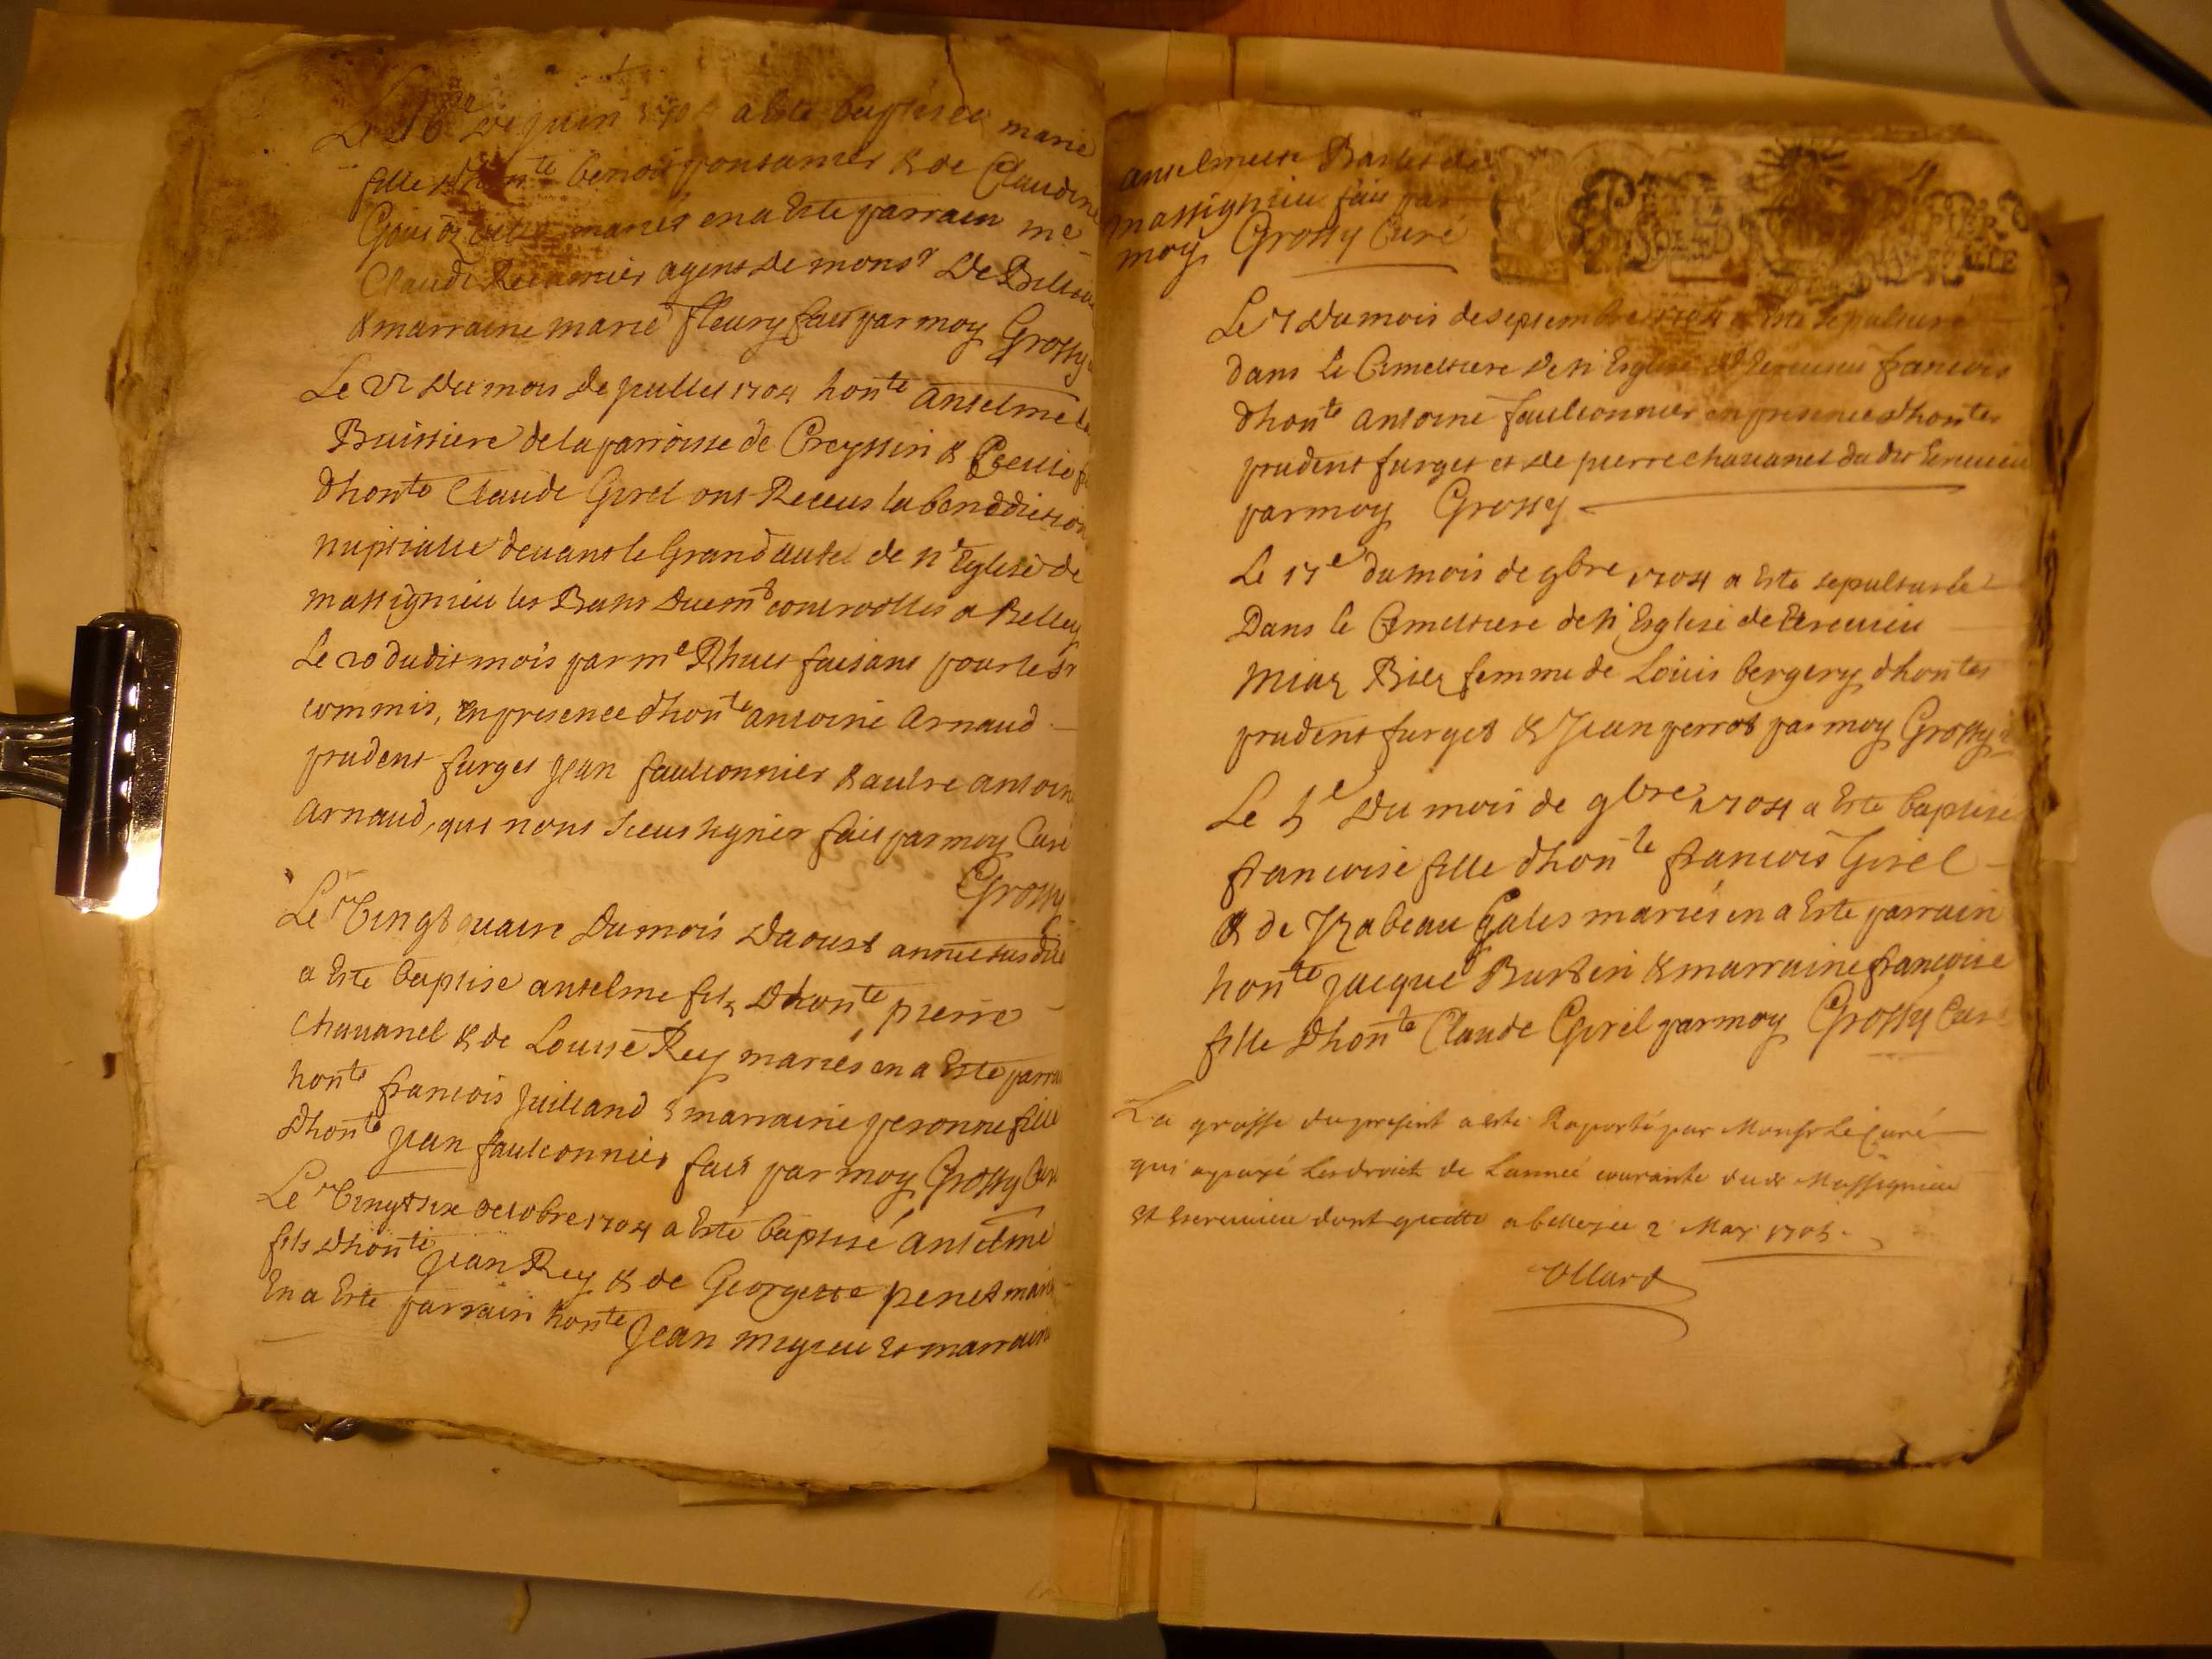 de juin 1704 a Esté baptisée marie
fille d'honte benoit ponsamier & de Claudine
mariés en a Este parrain me
Claude Recamier agent de monsr De
& marraine marie fleury fait par moy Grossy
Le 22 du mois de juillet 1704 honte anselme
Buissiere de la parroisse de Creyssin &
d'honte Claude Girel ont Receus la benediction
nuptialle devant le Grand autel de nre Eglise de
massignieu les Bans controolles a Belley
Le 20 dudit mois par me Rhuet faisant pour le Sr
commis, En presence d'honte antoine arnaud
prudent furget jean faulconnier & aultre antoine
arnaud, qui nont sceu signer fait par moy Curé
Grossy
Le Vingt quatre du mois daoust année susdite
a Este baptise anselme fils d'honte pierre
chavanel & de Louise Rey mariés en a Este parra
honte francois juilland & marraine peronne fille
d'honte jean faulconnier fait par moy Grossy Curé
Le Vingt six octobre 1704 a Esté baptisé anselme
fils d'honte Jean Rey & de Georgette penet mariés
En a Este parrain honte Jean migieu Et marraine
anselmette
massignieu fait par
moy Grossy Curé
Le 7 du mois de septembre 1704 a Este sepulturé
dans le Cimettiere de nre Eglise francois
d'honte antoine faulconnier en presence d'hontes
prudent furget et de pierre chavanel dudit
par moy Grossy
Le 17e du mois de 9bre 1704 a Este sepulturée
Dans le Cimettiere de nre Eglise de
femme de Louis bergery d'hontes
prudent furget & Jean perrot par moy Grossy
Le 5e Du mois de 9bre 1704 a Este baptisé
francoise fille d'honte francois Girel
& de Izabeau Gales mariés en a Este parrain
honte jacque Burtin & marraine francoise
fille d'honte Claude Girel par moy Grossy Curé
La grosse du present a esté Raporté par Monsr Le Curé
qui a payé Les droits de Lannée courante dud Massignieu
Et dont quitte a belley ce 2 May 1705
Ollard